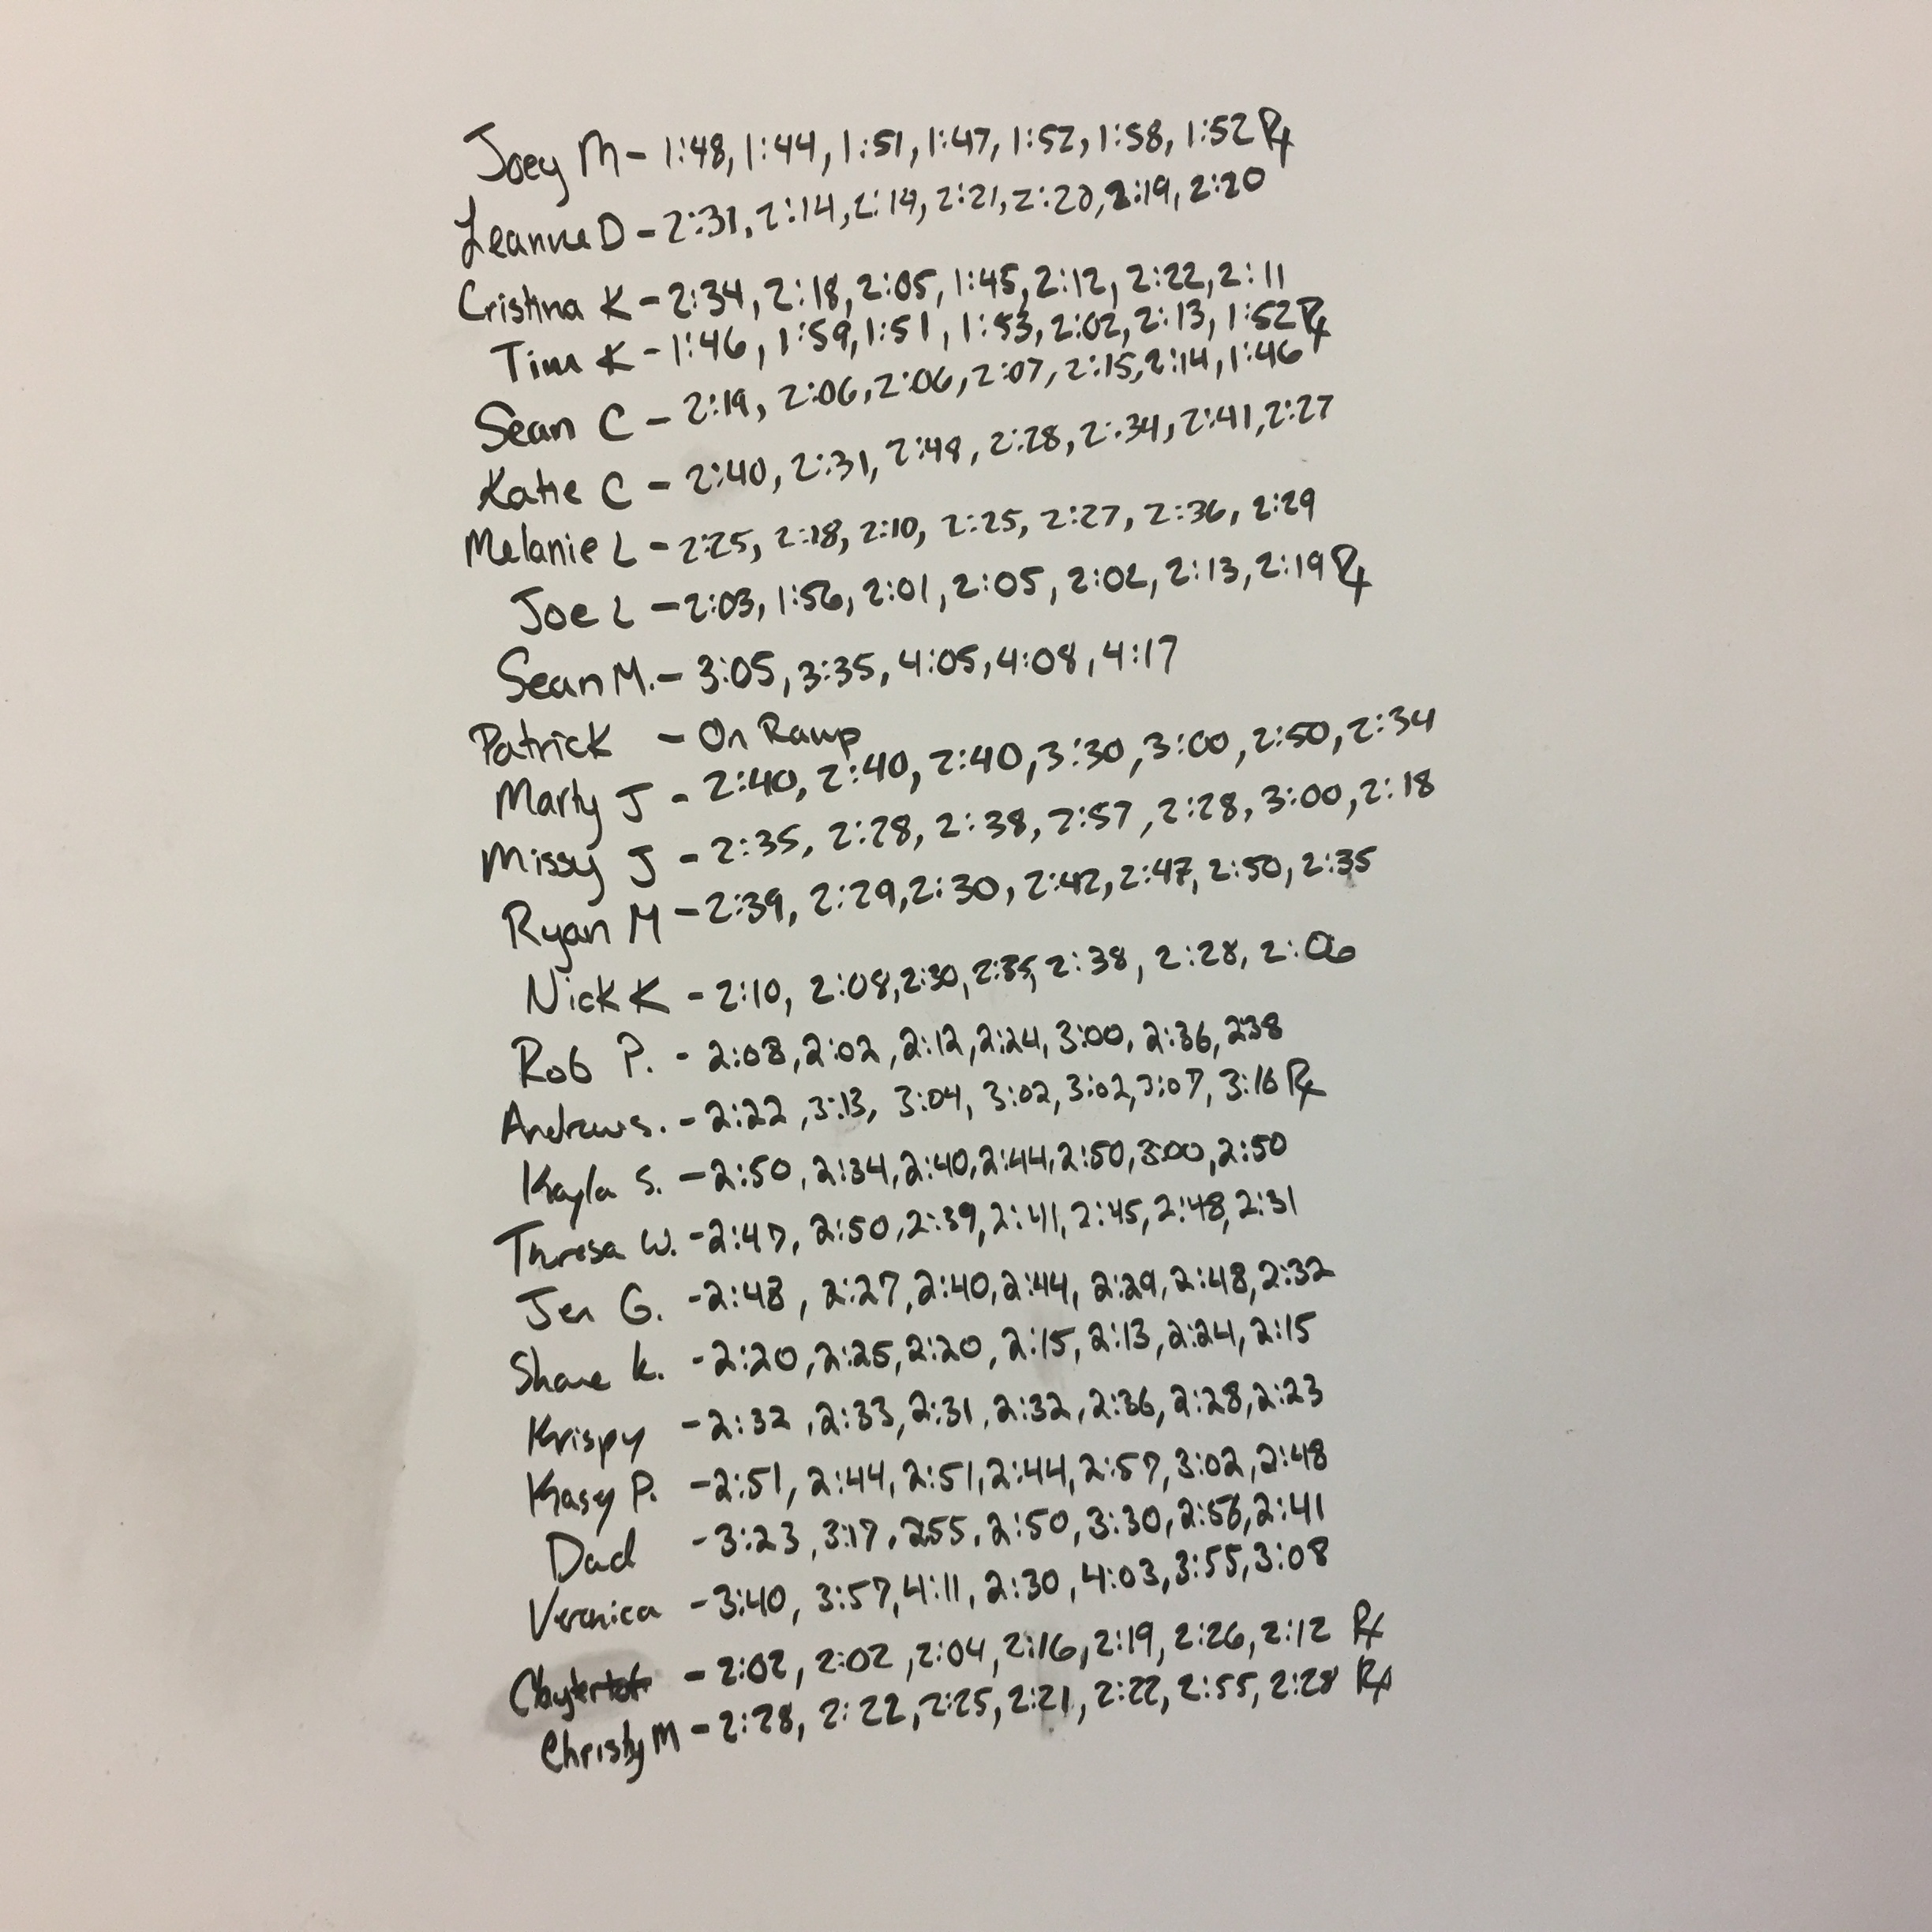 Joey M - 1:48, 1:44, 1:51, 1:47, 1:52, 1:58, 1:52 Rx
Leanne D - 2:31, 2:14, 2:19, 2:21, 2:20, 2:19, 2:20
Cristina K - 2:34, 2:18, 2:05, 1:45, 2:12, 2:22, 2:11
Tim K - 1:46, 1:59, 1:51, 1:53, 2:02, 2:13, 1:52 Rx
Sean C - 2:19, 2:06, 2:06, 2:07, 2:15, 2:14, 1:46
Katie C - 2:40, 2:31, 2:48, 2:28, 2:34, 2:41, 2:27
Melanie L - 2:25, 2:18, 2:10, 2:25, 2:27, 2:36, 2:29
Joe L - 2:03, 1:56, 2:01, 2:05, 2:02, 2:13, 2:19 Rx
Sean M. - 3:05, 3:35, 4:05, 4:08, 4:17
Patrick - On Ramp
Marty J - 2:40, 2:40, 2:40, 3:30, 3:00, 2:50, 2:34
Missy J - 2:35, 2:28, 2:38, 2:57, 2:28, 3:00, 2:18
Ryan M - 2:39, 2:29, 2:30, 2:42, 2:47, 2:50, 2:35
Nick K - 2:10, 2:08, 2:30, 2:35, 2:38, 2:28, 2:06
Rob P. - 2:08, 2:02, 2:12, 2:24, 3:00, 2:36, 2:38
Andrew S. - 2:22, 3:13, 3:04, 3:02, 3:02, 3:07, 3:16 Rx
Kayla S. - 2:50, 2:34, 2:40, 2:44, 2:50, 3:00, 2:50
Theresa W. - 2:47, 2:50, 2:39, 2:41, 2:45, 2:48, 2:31
Jen G. - 2:48, 2:27, 2:40, 2:44, 2:29, 2:48, 2:32
Shane k. - 2:20, 2:25, 2:20, 2:15, 2:13, 2:24, 2:15
Krispy - 2:32, 2:33, 2:31, 2:32, 2:36, 2:28, 2:23
Kasey P. - 2:51, 2:44, 2:51, 2:44, 2:57, 3:02, 2:48
Dad - 3:23, 3:17, 2:55, 2:50, 3:30, 2:58, 2:41
Veronica - 3:40, 3:57, 4:11, 2:30, 4:03, 3:55, 3:08
- 2:02, 2:02, 2:04, 2:16, 2:19, 2:26, 2:12 Rx
Christy M - 2:28, 2:22, 2:25, 2:21, 2:22, 2:55, 2:28 Rx